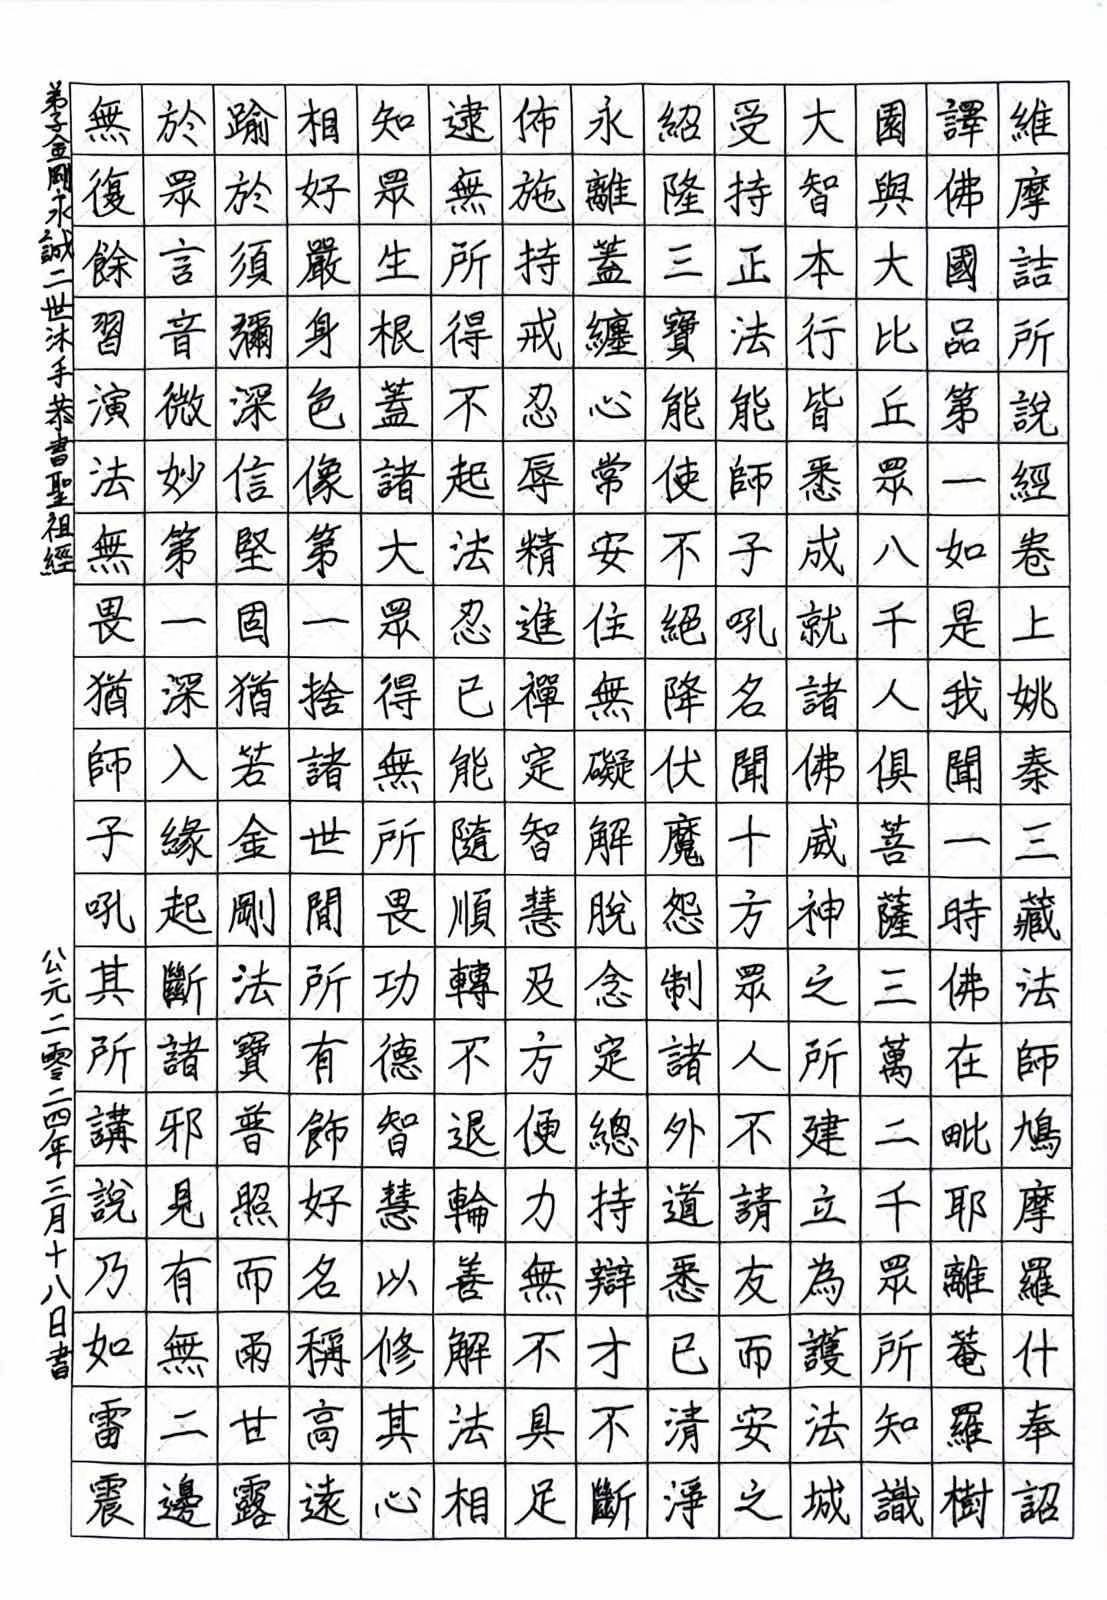 維摩詰所說經卷上姚秦三藏法師鳩摩羅什奉詔
譯佛國品第一如是我聞一時佛在毗耶離菴羅樹
園與大比丘眾八千人俱菩薩三萬二千眾所知識
大智本行皆悉成就諸佛威神之所建立為護法城
受持正法能師子吼名聞十方眾人不請友而安之
紹隆三寶能使不絕降伏魔怨制諸外道悉已清淨
永離蓋纏心常安住無礙解脫念定總持辯才不斷
佈施持戒忍辱精進禪定智慧及方便力無不具足
逮無所得不起法忍已能隨順轉不退輪善解法相
知眾生根蓋諸大眾得無所畏功德智慧以修其心
相好嚴身色像第一捨諸世間所有飾好名稱高遠
踰於須彌深信堅固猶若金剛法寶普照而雨甘露
於眾言音微妙第一深入緣起斷諸邪見有無二邊
無復餘習演法無畏猶師子吼其所講說乃如雷震
弟子金剛永誠二世沐手恭書聖祖經
公元二零二四年三月十八日書